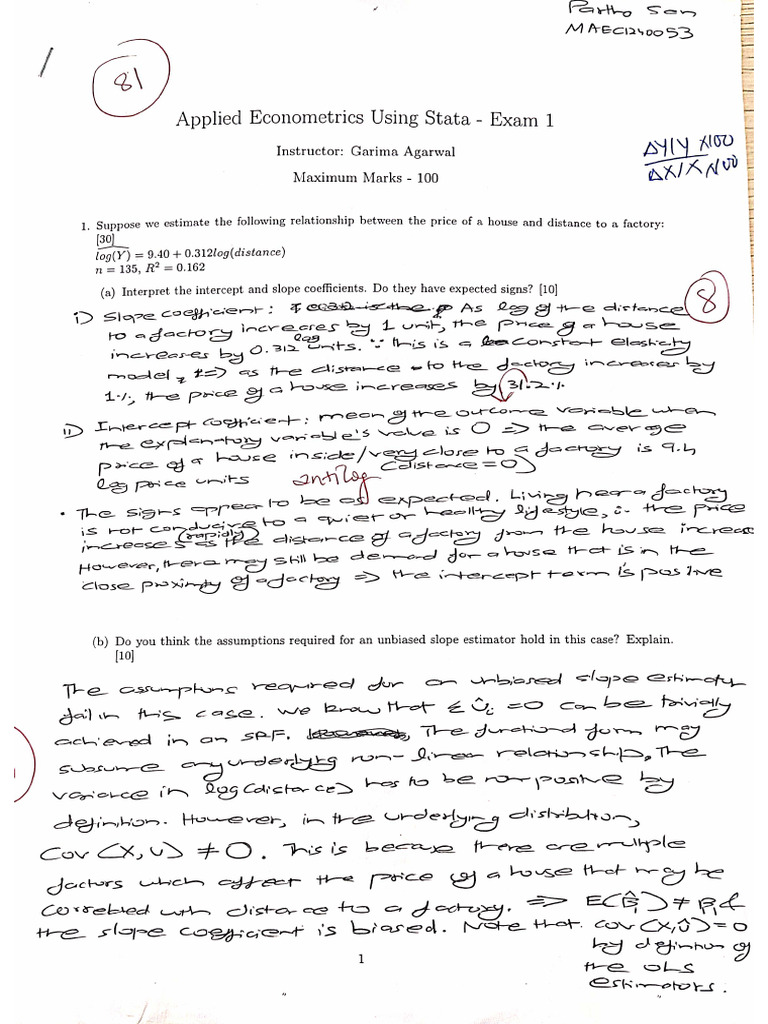 Partho Sen
MAEC1240053
81
Applied Econometrics Using Stata - Exam 1
Instructor: Garima Agarwal
Maximum Marks - 100
ΔY/Y X100
ΔX/X X100
1. Suppose we estimate the following relationship between the price of a house and distance to a factory:
[30]
log(Y) = 9.40 + 0.312log(distance)
n = 135, R² = 0.162
(a) Interpret the intercept and slope coefficients. Do they have expected signs? [10]
8
i) Slope coefficient: As log of the distance
to a factory increases by 1 unit, the price of a house
increases by 0.312 log units. ∵ this is a constant elasticity
model, => as the distance to the factory increases by
1%, the price of a house increases by 31.2%
ii) Intercept coefficient: mean of the outcome variable when
the explanatory variable's value is 0 => the average
price of a house inside/very close to a factory is 9.4
log price units antilog (distance = 0)
• The signs appear to be as expected. Living near a factory
is not conducive to a quiet or healthy lifestyle, ∴ the price
increases (rapidly) as the distance of a factory from the house increases
However, there may still be demand for a house that is in the
close proximity of a factory => the intercept term is positive
(b) Do you think the assumptions required for an unbiased slope estimator hold in this case? Explain.
[10]
The assumptions required for an unbiased slope estimator
fail in this case. We know that Σ Ûᵢ = 0 can be trivially
achieved in an SRF. The functional form may
subsume any underlying non-linear relationship. The
variance in log(distance) has to be non positive by
definition. However, in the underlying distribution,
Cov (X, U) ≠ 0. This is because there are multiple
factors which affect the price of a house that may be
correlated with distance to a factory. => E(β̂₁) ≠ β₁ &
the slope coefficient is biased. Note that cov(X,Û) = 0
by definition of
the OLS
estimators.
1